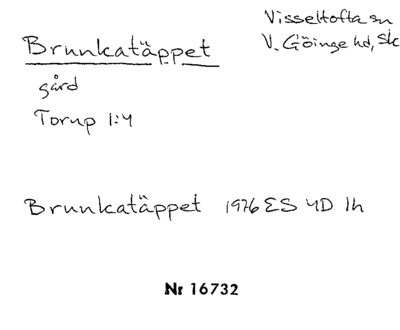 Brunkatäppet
Visseltofta sn
V. Göinge hd, Sk
gård
Torup 1:4
Brunkatäppet 1976 ES 4D 1h
Nr 16732